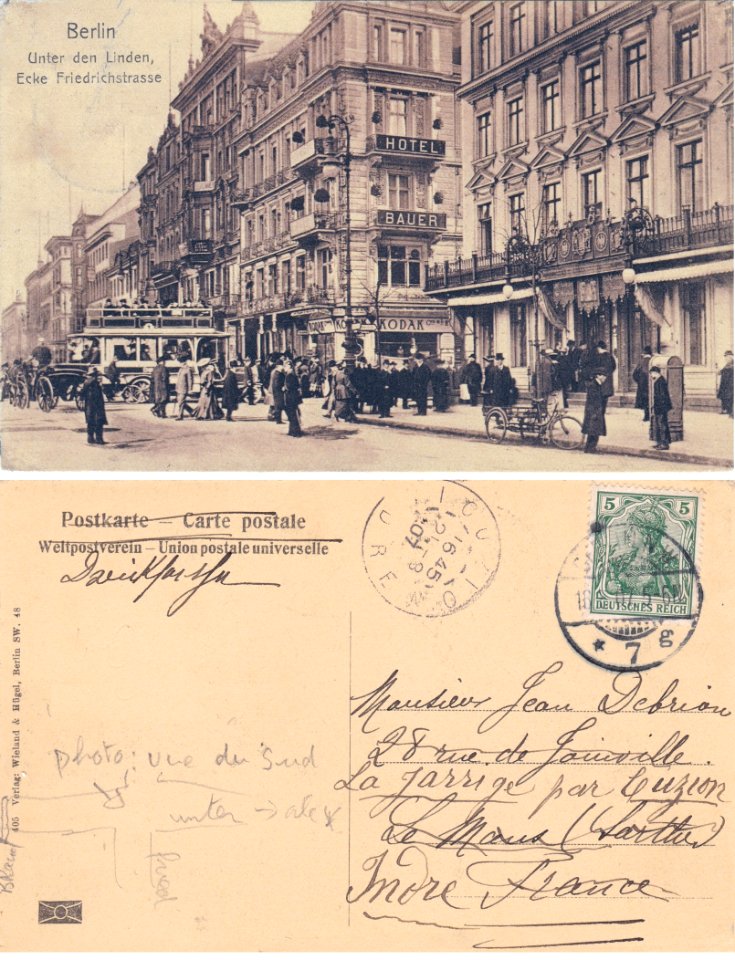 Berlin
Unter den Linden,
Ecke Friedrichstrasse
HOTEL
BAUER
KODAK
KODAK
Postkarte — Carte postale
Weltpostverein — Union postale universelle
Drucksache
CUZION
16 45
21 - 8
07
INDRE
5
DEUTSCHES REICH
* 7 g
Monsieur Jean Debrion
28 rue de Joinville.
La Jarrige par Cuzion
Le Mans (Sarthe)
Indre France
photo: vue du Sud
unter → alex
fried
405 Verlag: Wieland & Hügel, Berlin SW. 48